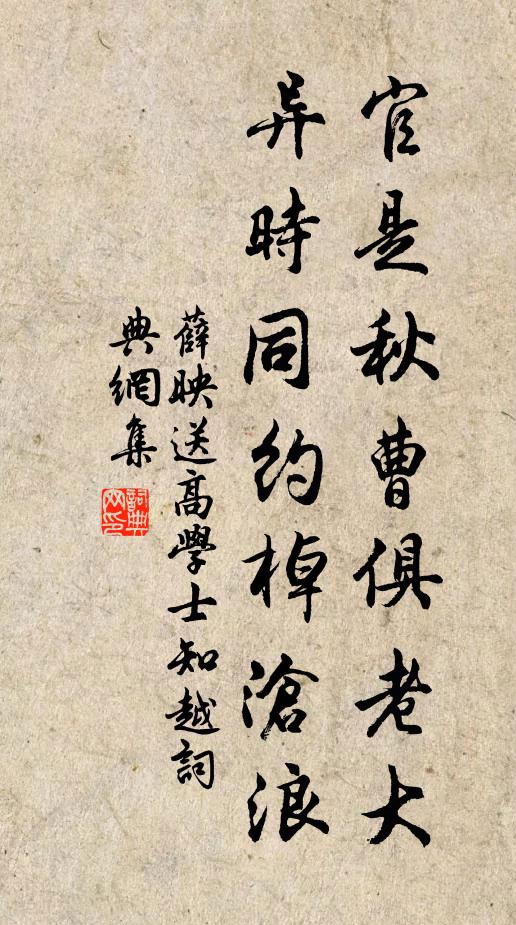 官是秋曹俱老大
异時同約棹滄浪
薛映送高學士知越詞
典網集
詞典網印